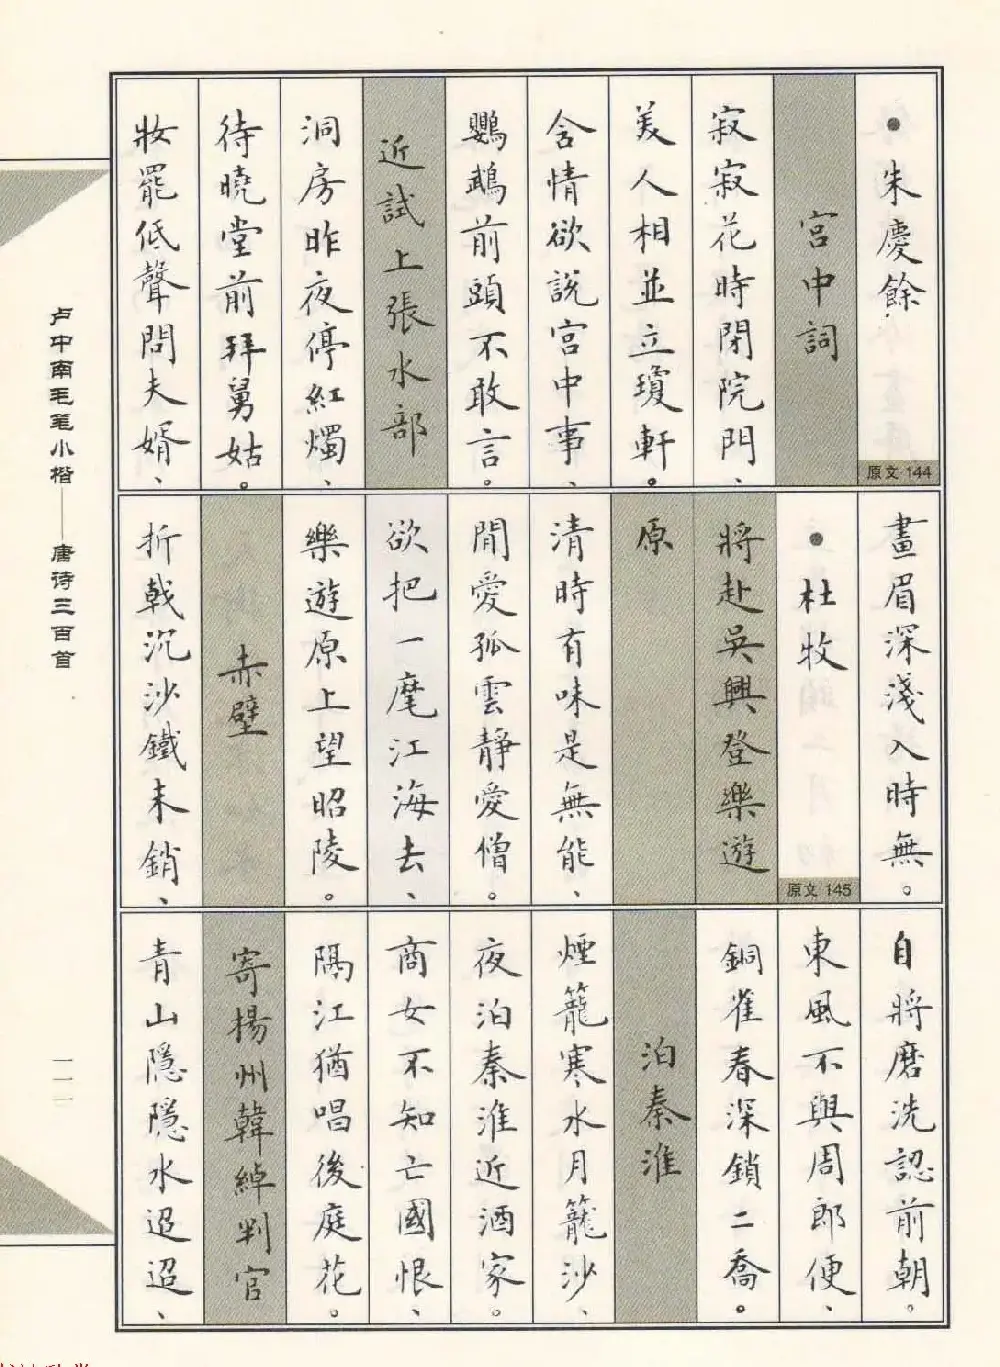 ●朱慶餘
原文 144
宮中詞
寂寂花時閉院門、
美人相並立瓊軒。
含情欲說宮中事、
鸚鵡前頭不敢言。
近試上張水部
洞房昨夜停紅燭、
待曉堂前拜舅姑。
妝罷低聲問夫婿、
畫眉深淺入時無。
●杜牧
原文 145
將赴吳興登樂遊
原
清時有味是無能、
閒愛孤雲靜愛僧。
欲把一麾江海去、
樂遊原上望昭陵。
赤壁
折戟沉沙鐵未銷、
自將磨洗認前朝。
東風不與周郎便、
銅雀春深鎖二喬。
泊秦淮
煙籠寒水月籠沙、
夜泊秦淮近酒家。
商女不知亡國恨、
隔江猶唱後庭花。
寄揚州韓綽判官
青山隱隱水迢迢、
卢中南毛笔小楷——唐诗三百首
一一一